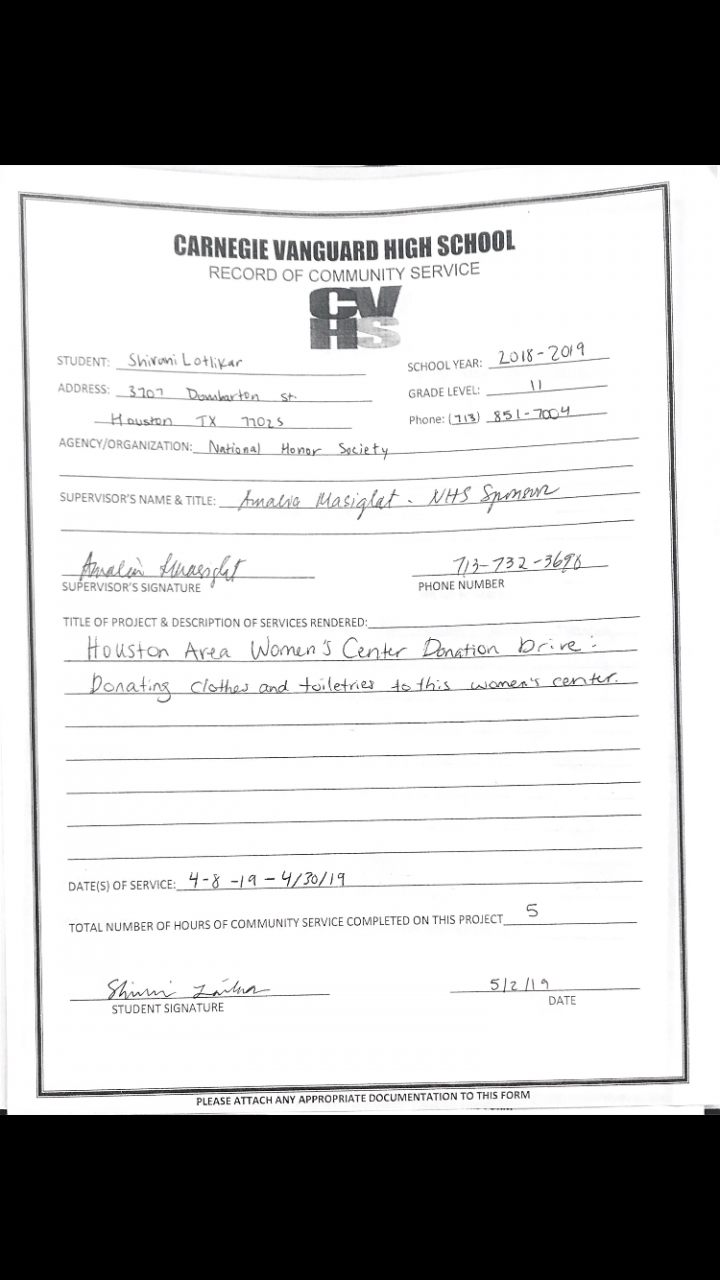 CARNEGIE VANGUARD HIGH SCHOOL
RECORD OF COMMUNITY SERVICE
CV
HS
STUDENT: Shivani Lotlikar
SCHOOL YEAR: 2018-2019
ADDRESS: 3707 Dumbarton St.
GRADE LEVEL: 11
Houston TX 77025
Phone: (713) 851-7004
AGENCY/ORGANIZATION: National Honor Society
SUPERVISOR'S NAME & TITLE: Amalia Masiglat - NHS Sponsor
713-732-3698
SUPERVISOR'S SIGNATURE
PHONE NUMBER
TITLE OF PROJECT & DESCRIPTION OF SERVICES RENDERED:
Houston Area Women's Center Donation Drive:
Donating clothes and toiletries to this women's center.
DATE(S) OF SERVICE: 4-8-19 - 4/30/19
TOTAL NUMBER OF HOURS OF COMMUNITY SERVICE COMPLETED ON THIS PROJECT 5
5/2/19
STUDENT SIGNATURE
DATE
PLEASE ATTACH ANY APPROPRIATE DOCUMENTATION TO THIS FORM